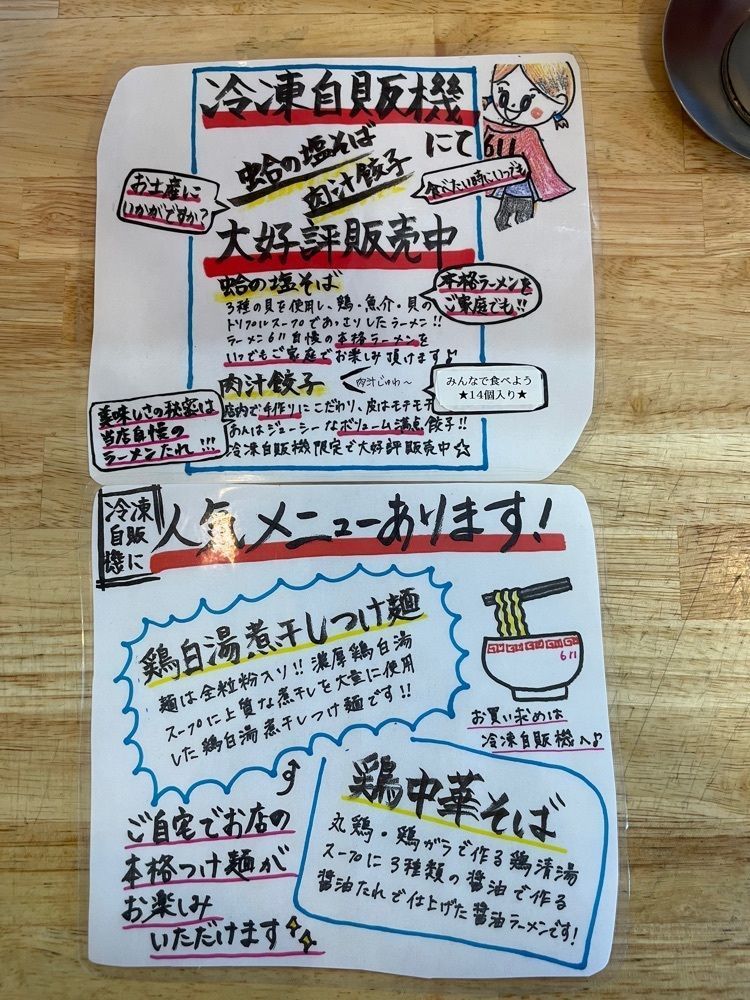 冷凍自販機
にて
611
蛤の塩そば
肉汁餃子
お土産に
いかがですか?
食べたい時にいつでも
大好評販売中
蛤の塩そば
3種の貝を使用し、鶏・魚介・貝の
トリプルスープであっさりしたラーメン!!
ラーメン611自慢の本格ラーメンを
いつでもご家庭でお楽しみ頂けます♪
本格ラーメンを
ご家庭でも!!
肉汁餃子
肉汁じゅわ〜
みんなで食べよう
★14個入り★
店内で手作りにこだわり、皮はモチモチ
あんはジューシーなボリューム満点餃子!!
冷凍自販機限定で大好評販売中☆
美味しさの秘密は
当店自慢の
ラーメンたれ!!!
冷凍
自販
機に
人気メニューあります!
鶏白湯煮干しつけ麺
麺は全粒粉入り!!濃厚鶏白湯
スープに上質な煮干しを大量に使用
した鶏白湯煮干しつけ麺です!!
611
お買い求めは
冷凍自販機へ♪
ご自宅でお店の
本格つけ麺が
お楽しみ
いただけます
鶏中華そば
丸鶏・鶏ガラで作る鶏清湯
スープに3種類の醤油で作る
醤油たれで仕上げた醤油ラーメンです!